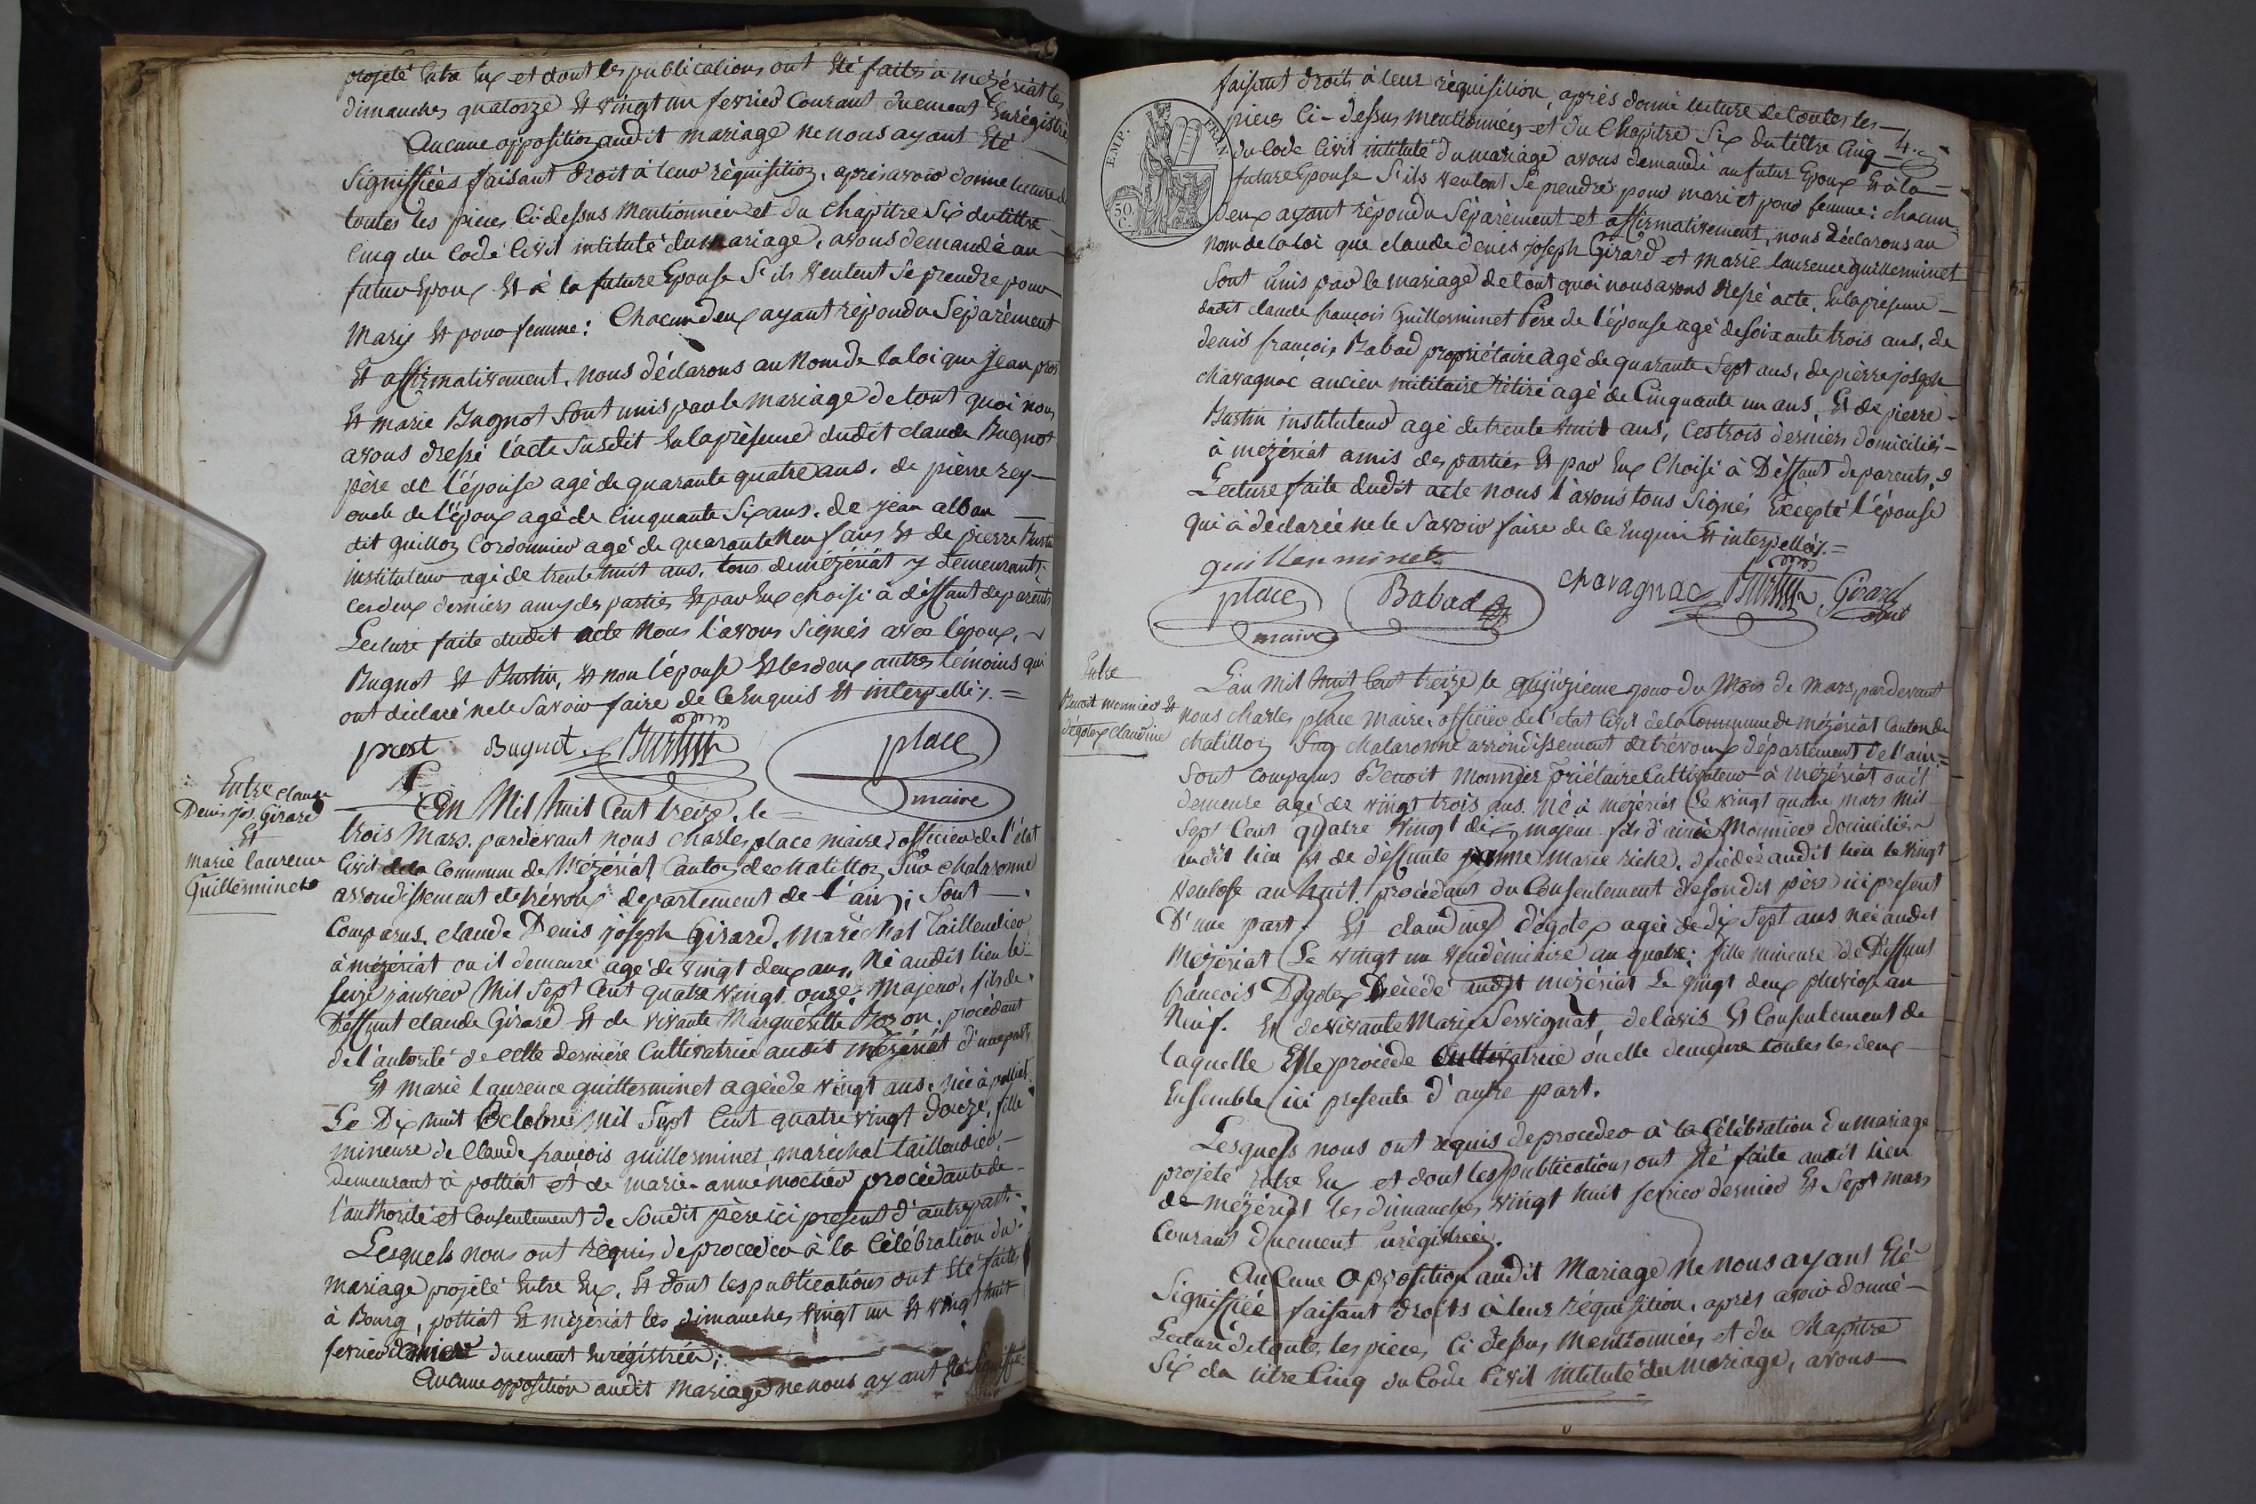 projeté Entre Eux et dont les publications ont Eté faites à mezériat les
dimanches quatorze Et vingt un fevrier Courant duement Enrégistré
Aucune opposition audit mariage ne nous ayant Eté
Signiffiées faisant droit à leur réquisition, après avoir donné lecture de
toutes les pieces Ci-dessus Mentionnées et du Chapitre Six du tittre
Cinq du Code Civil intitulé du mariage, avons demandé au
futur Epoux Et à la future Epouse S'ils veulent Se prendre pour
Mary Et pour femme: Chacun deux ayant répondu Séparément
Et affirmativement, nous déclarons au Nom de la loi que jean prost
Et marie Bugnot Sont unis par le mariage de tout quoi nous
avons dressé l'acte Susdit En la présence dudit claude Bugnot
père de l'épouse agé de quarante quatre ans, de pierre rey
oncle de l'époux agé de Cinquante Six ans, de jean alban
dit guillon Cordonnier agé de quarante Neuf ans Et de pierre Burtin
instituteur agé de trente huit ans, tous de mézériat y demeurants,
ces deux derniers amy des parties Et par Eux choisi à déffaut de parents
Lecture faite dudit acte Nous l'avons Signés avec l'époux,
Bugnot Et Burtin, Et non l'épouse Et les deux autres témoins qui
ont déclaré ne le Savoir faire de ce Enquis Et interpellés. =
prost Bugnot Burtin place
maire
Entre Claude
Denis jos. Girard
Et
marie laurence
Guillerminet
L'En Mil huit Cent treize, le =
trois Mars, pardevant nous charles place maire d'officier de l'état
Civil de la Commune de Mezériat Canton de chatillon Sur chalaronne
arrondissement de trévoux département de l'ain; Sont
Comparus, claude Denis joseph Girard, maréchal Taillandier
à mézériat ou il demeure agé de vingt deux ans, Né audit lieu le
seize janvier Mil Sept Cent quatre vingt onze, Majeur, fils de
Déffunt claude Girard Et de vivante Marguéritte Bozon, procédant
de l'autorité de cette dernière Cultivatrice audit mézériat d'une part
Et Marie laurence guillerminet agée de vingt ans, née à polliat
Le Dix huit Octobre Mil Sept Cent quatre vingt douze, fille
mineure de Claude francois guillerminet, maréchal taillandier,
demeurant à polliat et de marie-anne mochier procédante de
l'authorité et Consentement de Sondit père ici présent d'autre part.
Lesquels nous ont réquis de procéder à la Célébration du
mariage projeté Entre Eux, Et dont les publications ont Eté faites
à Bourg, polliat Et mézériat les dimanches vingt un Et vingt huit
fevrier dernier duement Enrégistrées;
Aucune opposition audit Mariage ne nous ayant Eté Signiffié
4.
EMP. FRAN
50. C.
faisant droits à leur réquisition, après donné lecture de toutes les
pieces Ci-dessus mentionnées et du Chapitre Six du tittre Cinq
du Code Civil intitulé du mariage avons demandé au futur Epoux Et à la
future Epouse S'ils veulent Se prendre pour mari et pour femme: chacun
deux ayant répondu Séparément et affirmativement, nous déclarons au
Nom de la loi que claude denis joseph Girard et marie laurence guillerminet
Sont Unis par le mariage de tout quoi nous avons dressé acte, En la présence
dudit claude françois Guillerminet Père de l'épouse agé de soixante trois ans, de
denis françois Babad propriétaire agé de quarante Sept ans, de pierre joseph
chavagnac ancien militaire rétiré agé de Cinquante un ans, Et de pierre
Burtin instituteur agé de trente huit ans, Ces trois derniers domiciliés
à mézériat amis des parties Et par Eux Choisi à Déffaut de parents,
Lecture faite dudit acte nous l'avons tous Signés Excepté l'épouse
qui à déclarée ne le Savoir faire de ce Enquis Et interpellés. =
guillerminet
place Babad chavagnac Burtin Girard
maire
Entre
Benoit monnier Et
dégotex Claudine
L'an Mil huit Cent treize le quinzieme jour du Mois de Mars, pardevant
nous charles place Maire, officier de l'état Civil de la Commune de mézériat Canton de
chatillon Sur chalaronne arrondissement de trévoux département de l'ain =
Sont comparus Benoit Monnier Priétaire Cultivateur à mézériat ou il
demeure agé de vingt trois ans. Né à mezériat Le vingt quatre mars Mil
Sept Cent quatre vingt dix, majeur fils d'aimé Monnier domicilié
audit lieu Et de déffunte jeanne Marie riche, décédée audit lieu le vingt
Ventose an huit. procédant du Consentement de sondit père ici présent
D'une part. Et claudine dégotex agée de dix Sept ans née audit
Mézériat Le vingt un vendémiaire an quatre: fille mineure de Déffunt
françois Dégotex Décédé audit mézériat Le vingt deux pluviose an
Neuf. Et de vivante Marie Servignat, de l'avis Et Consentement de
laquelle Elle procède Cultivatrice ou elle demeure toutes les deux
Ensemble ici présente d'autre part.
Lesquels nous ont réquis de proceder à la Célébration du mariage
projeté Entre Eux et dont les publications ont Eté faite audit lieu
de mézériat les dimanches vingt huit fevrier dernier Et Sept mars
Courant duement Enrégistrées.
Aucune opposition audit Mariage Ne nous ayant Eté
Signiffiée faisant droits à leur réquisition, après avoir donné
Lecture de toutes les pieces Ci dessus Mentionnées et du Chapitre
Six du titre Cinq du Code Civil intitulé du Mariage, avons